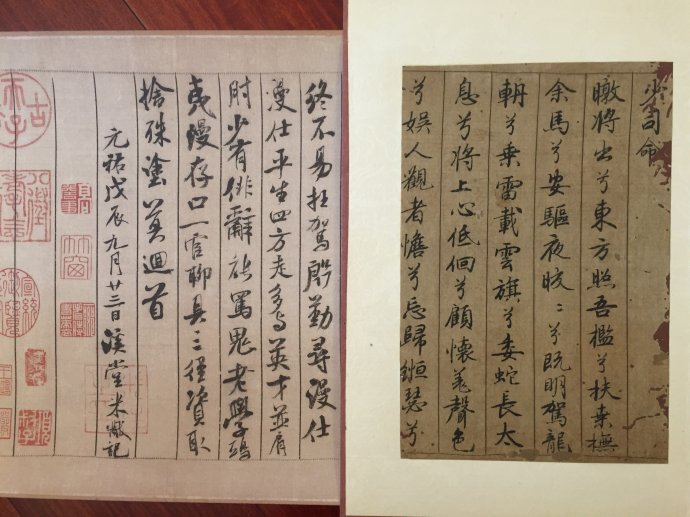 少司命
暾將出兮東方照吾檻兮扶桑撫
余馬兮安驅夜晈〻兮既明駕龍
輈兮乘雷載雲旗兮委蛇長太
息兮將上心低佪兮顧懷羌聲色
兮娛人觀者憺兮忘歸緪瑟兮
終不易枉駕殷勤尋漫仕
漫仕平生四方走多与英才並肩
肘少有俳辭能罵鬼老學鴟
夷慢存口一官聊具三徑資取
捨殊塗莫迴首
元祐戊辰九月廿三日溪堂米黻記